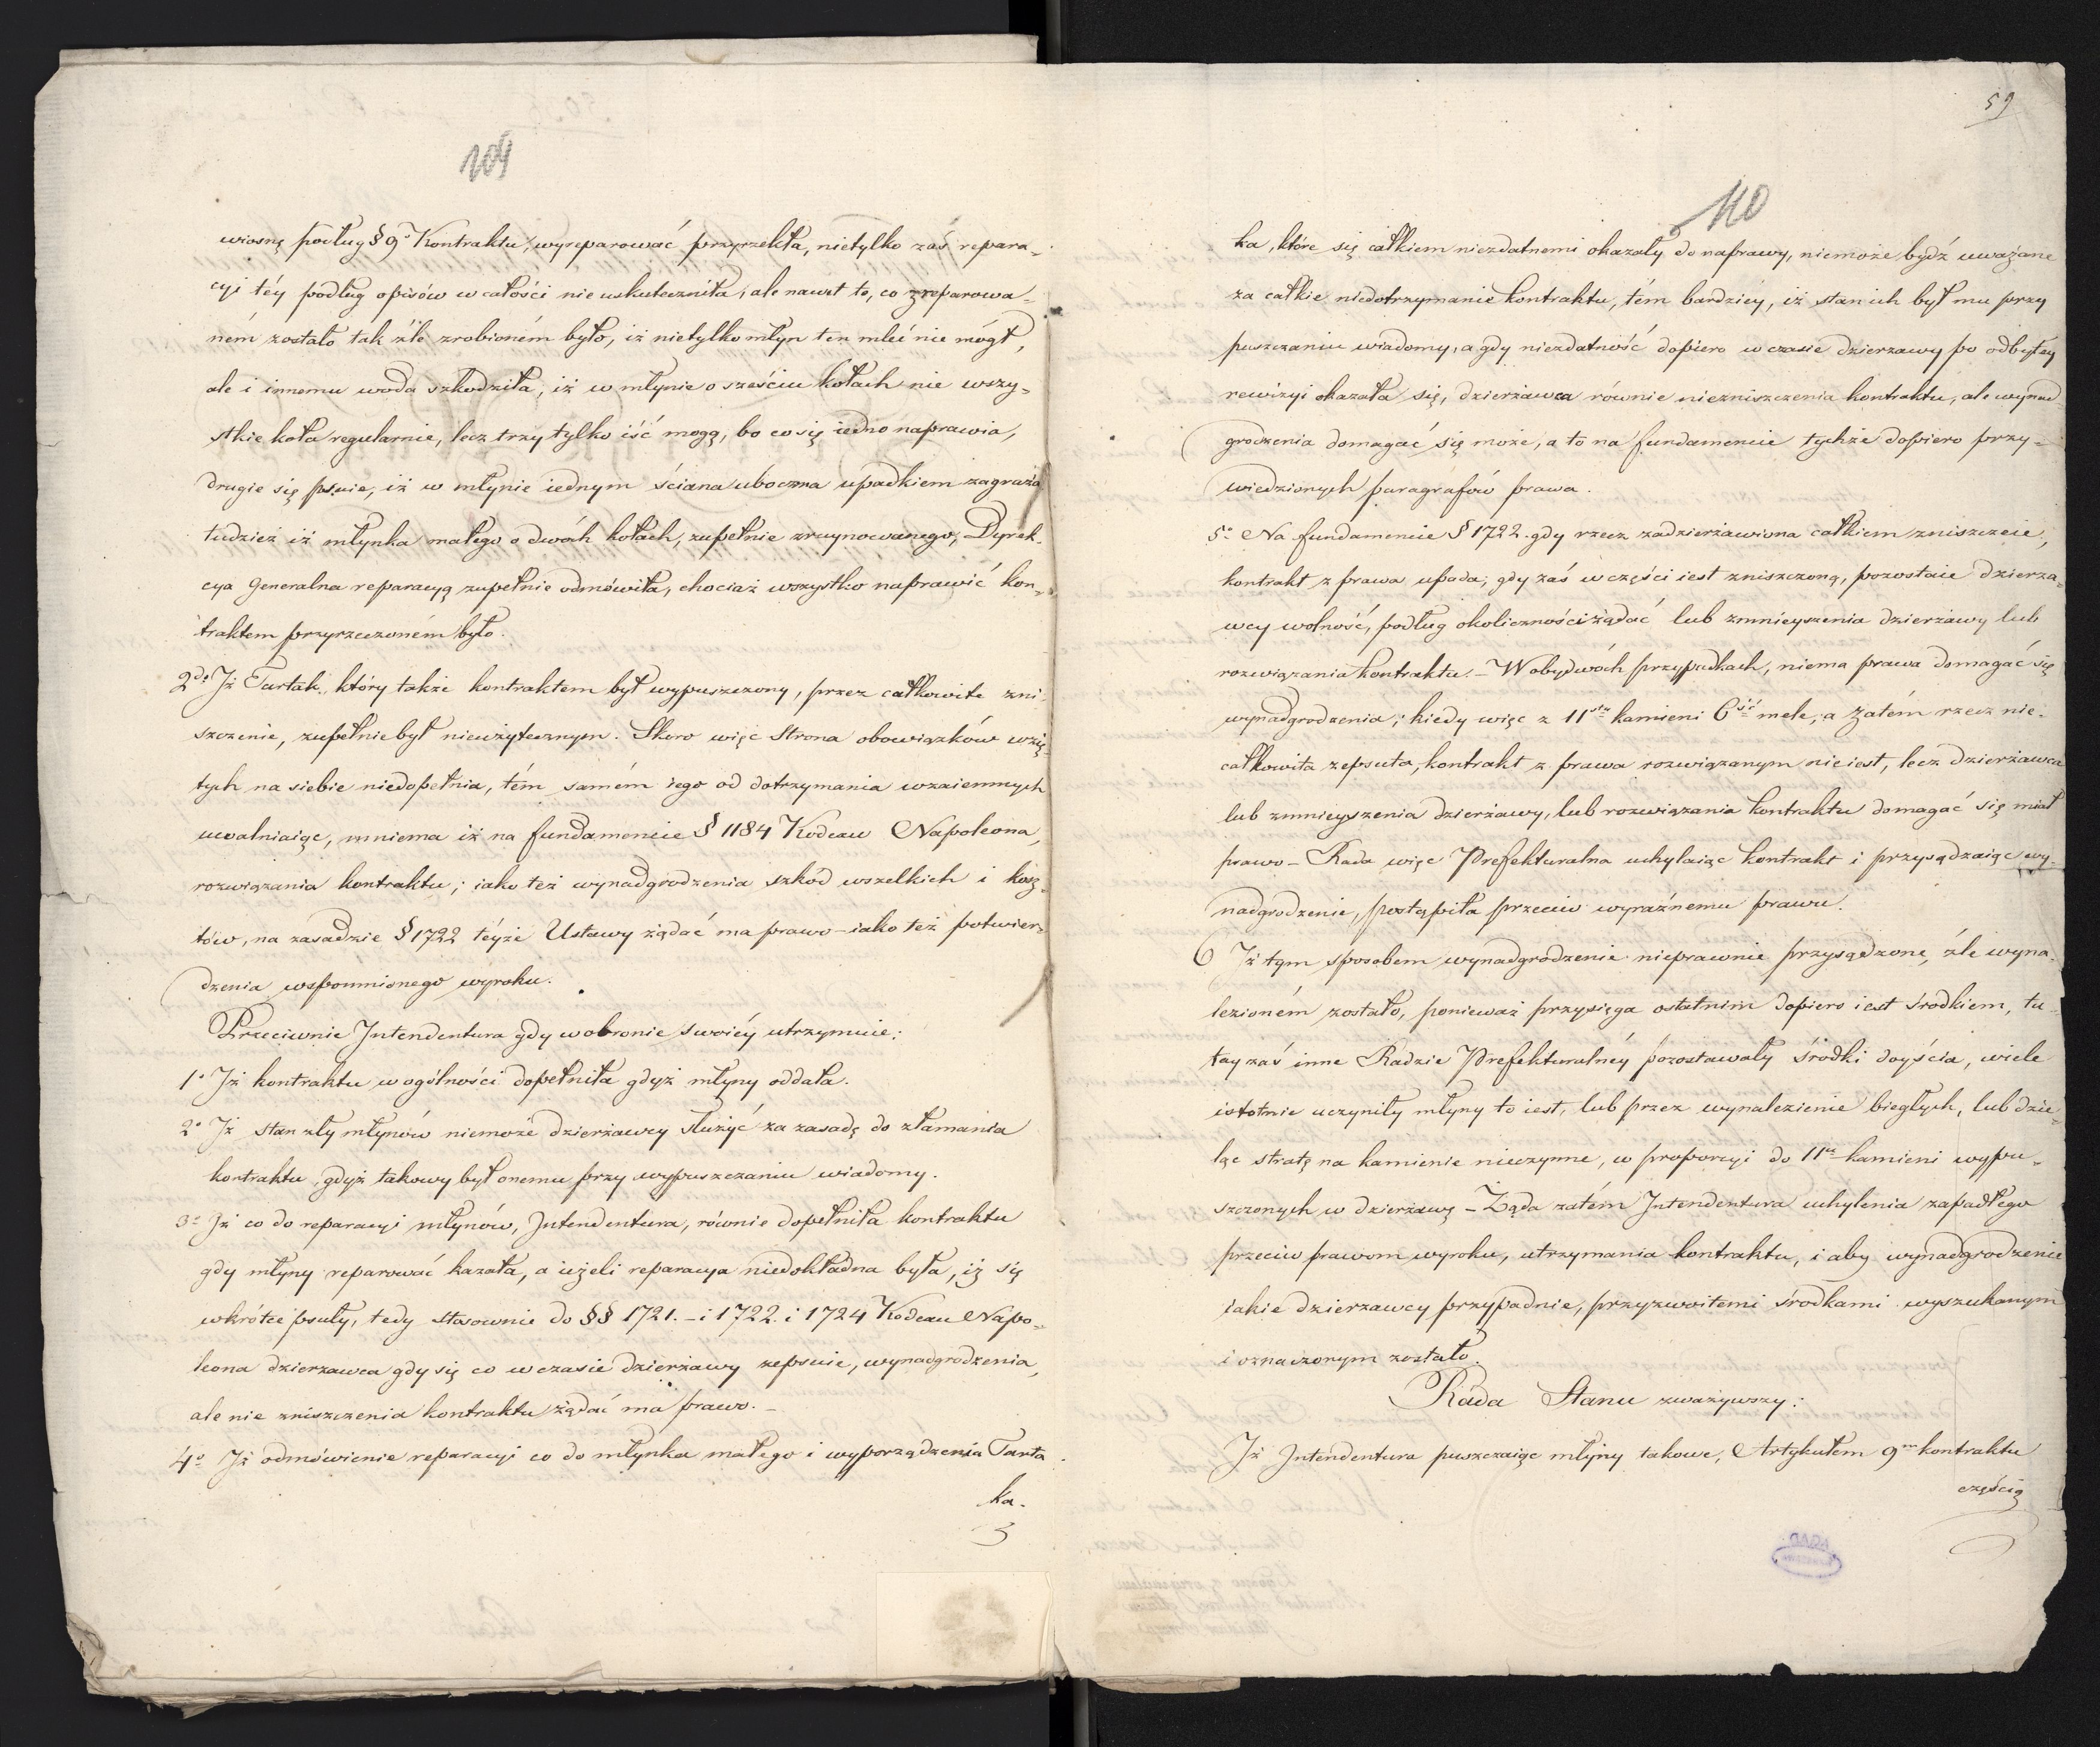 109
wiosnę podług § 9° Kontraktu, wyreparować przyrzekła, nietylko zaś repara-
cyi téy podług opisów w całości nie uskuteczniła, ale nawet to, co zreparowa-
ném zostało tak źle zrobioném było, iż nietylko młyn ten mleć nie mógł,
ale i innemu woda szkodziła, iż w młynie o sześciu kołach nie wszy-
stkie koła regularnie, lecz trzy tylko iść mogą, bo co się iedno naprawia,
drugie się psuie, iż w młynie iednym ściana uboczna upadkiem zagraża
tudzież iż młynka małego o dwóch kołach, zupełnie zruynowanego, Dyrek-
cya Generalna reparacyą zupełnie odmówiła, chociaż wszystko naprawić kon-
traktem przyrzeczoném było.
2do Iż Tartak, który także kontraktem był wypuszczony, przez całkowite zni-
szczenie, zupełnie był nieużytecznym. Skoro więc Strona obowiązków wzię-
tych na siebie niedopełnia, tém samém iego od dotrzymania wzaiemnych
uwalniaiąc, mniema iż na fundamencie § 1184 Kodexu Napoleona,
rozwiązania kontraktu; iako też wynadgrodzenia szkód wszelkich i kosz-
tów, na zasadzie § 1722 téyże Ustawy żądać ma prawo - iako też potwier-
dzenia wspomnionego wyroku.
Przeciwnie Intendentura gdy w obronie swoiéy utrzymuie:
1° Iż kontraktu w ogólności dopełniła gdyż młyny oddała.
2° Iż stan zły młynów niemoże dzierżawcy służyć za zasadę do złamania
kontraktu, gdyż takowy był onemu przy wypuszczaniu wiadomy.
3° Iż co do reparacyi młynów, Intendentura, równie dopełniła kontraktu
gdy młyny reparować kazała, a ieżeli reparacya niedokładna była, iż się
wkrótce psuły, tedy stosownie do §§ 1721. - i 1722. i 1724 Kodexu Napo-
leona dzierżawca gdy się co w czasie dzierżawy zepsuie, wynadgrodzenia,
ale nie zniszczenia kontraktu żądać ma prawo. -
4° Iż odmówienie reparacyi co do młynka małego i wyporządzenia Tarta
ka.
59
110
ka, które się całkiem niezdatnemi okazały do naprawy, niemoże bydź uważane
za całkie niedotrzymanie kontraktu, tém bardziéy, iż stan ich był mu przy
puszczaniu wiadomy, a gdy niezdatność dopiero w czasie dzierżawy po odbytey
rewizyi okazała się, dzierżawca równie niezniszczenia kontraktu, ale wynad
grodzenia domagać się może, a to na fundamencie tychże dopiero przy-
wiedzionych paragrafów prawa.
5° Na fundamencie § 1722. gdy rzecz zadzierżawiona całkiem zniszczeie,
kontrakt z prawa upada; gdy zaś w części iest zniszczoną, pozostaie dzierża-
wcy wolność, podług okoliczności żądać lub zmnieyszenia dzierżawy lub
rozwiązania kontraktu. - W obydwóch przypadkach, niema prawa domagać się
wynadgrodzenia; kiedy więc z 11stu kamieni 6ść mele, a zatém rzecz nie-
całkowita zepsuta, kontrakt z prawa rozwiązanym nieiest, lecz dzierżawca
lub zmnieyszenia dzierżawy, lub rozwiązania kontraktu domagać się miał
prawo - Rada więc Prefekturalna uchylaiąc kontrakt i przysądzaiąc wy-
nadgrodzenie, postąpiła przeciw wyraźnemu prawu.
6 Iż tym sposobem wynadgrodzenie nieprawnie przysądzone, źle wyna-
lezioném zostało, ponieważ przysięga ostatnim dopiero iest środkiem, tu-
tay zaś inne Radzie Prefekturalnéy pozostawały środki doyścia, wiele
istotnie uczyniły młyny to iest, lub przez wynalezienie biegłych, lub dzie-
ląc stratę na kamienie nieczynne, w proporcyi do 11tu kamieni wypu-
szczonych w dzierżawę - Żąda zatém Intendentura uchylenia zapadłego
przeciw prawom wyroku, utrzymania kontraktu, i aby wynadgrodzenie
iakie dzierżawcy przypadnie, przyzwoitemi środkami wyszukanym
i oznaczonym zostało.
Rada Stanu zważywszy:
Iż Intendentura puszczaiąc młyny takowe, Artykułem 9m kontraktu
częścią
AGAD